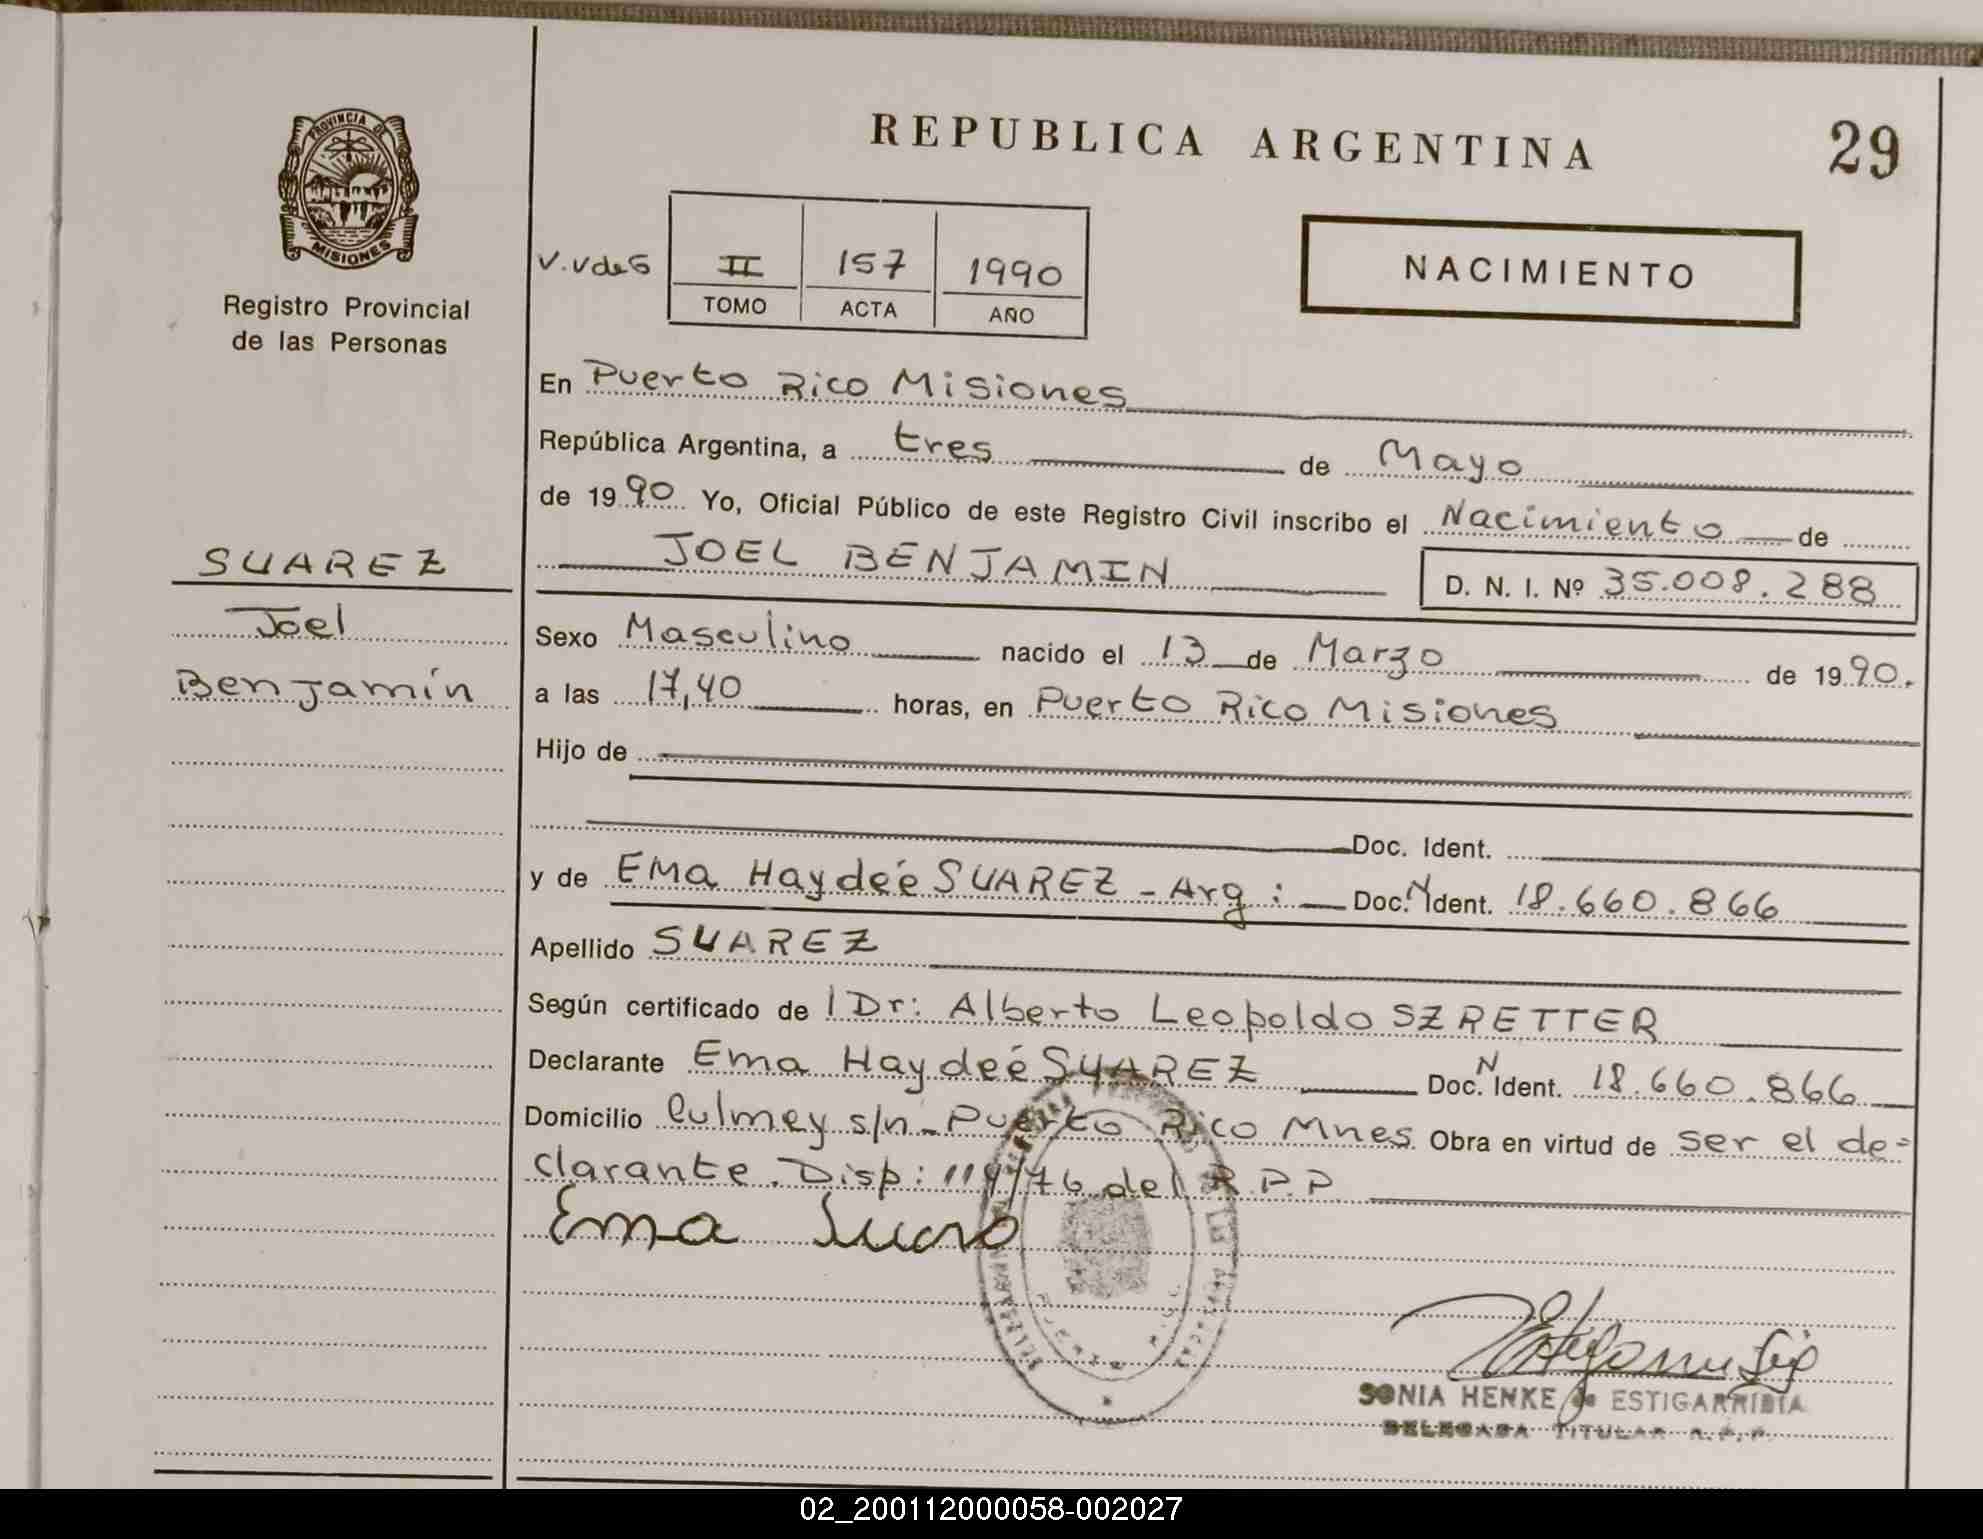 REPUBLICA ARGENTINA
29
PROVINCIA DE
MISIONES
Registro Provincial
de las Personas
V.VdeS
II
157
1990
TOMO
ACTA
AÑO
NACIMIENTO
SUAREZ
Joel
Benjamín
En Puerto Rico Misiones
República Argentina, a tres de Mayo
de 1990 Yo, Oficial Público de este Registro Civil inscribo el Nacimiento de
JOEL BENJAMIN D. N. I. Nº 35.008.288
Sexo Masculino nacido el 13 de Marzo de 1990.
a las 17,40 horas, en Puerto Rico Misiones
Hijo de
Doc. Ident.
y de Ema Haydée SUAREZ - Arg: Doc. N Ident. 18.660.866
Apellido SUAREZ
Según certificado de l Dr: Alberto Leopoldo SZRETTER
Declarante Ema Haydeé SUAREZ Doc. N Ident. 18.660.866
Domicilio Culmey s/n - Puerto Rico Mnes. Obra en virtud de ser el de=
clarante. Disp: 119/76 del R.P.P.
Ema Suarez
SONIA HENKE de ESTIGARRIBIA
DELEGADA TITULAR R.P.P.
02_200112000058-002027